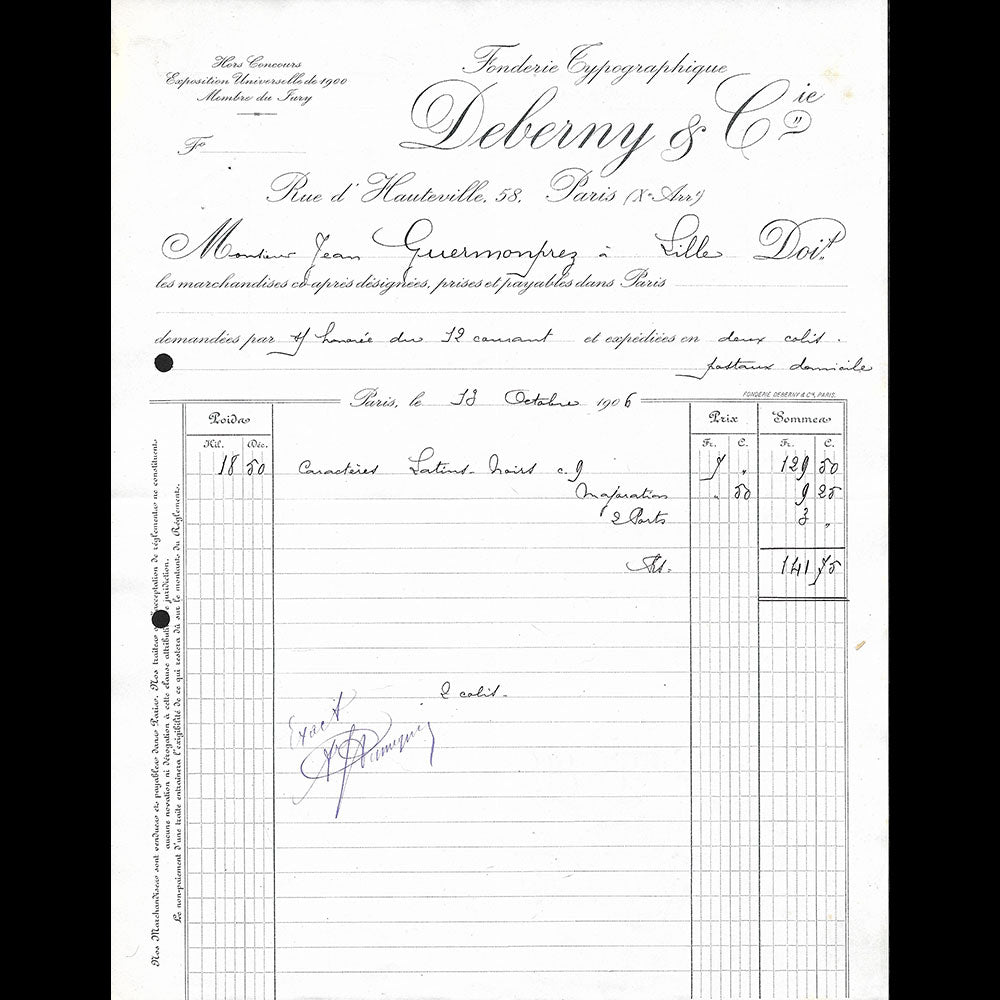 Hors Concours
Exposition Universelle de 1900
Membre du Jury
Fo
Fonderie Typographique
Deberny & Cie
Rue d'Hauteville, 58, Paris (Xe Arrt)
Monsieur Jean Guermonprez à Lille Doit
les marchandises ci-après désignées, prises et payables dans Paris
demandées par s/ honorée du 12 courant et expédiées en deux colis
postaux domicile
Paris, le 18 Octobre 1906
FONDERIE DEBERNY & Cie, PARIS.
Poids Prix Sommes
Kil. Déc. Fr. C. Fr. C.
18 50 Caractères Latins-Noirs c. 9 7 " 129 50
Majoration " 50 9 25
2 Ports 3 "
141 75
2 colis.
Exact
Nos Marchandises sont vendues et payables dans Paris. Nos traites acceptation de règlements ne constituent
aucune novation ni dérogation à cette clause attributi e juridiction.
Le non-paiement d'une traite entraînera l'exigibilité de ce qui restera dû sur le montant du Règlement.